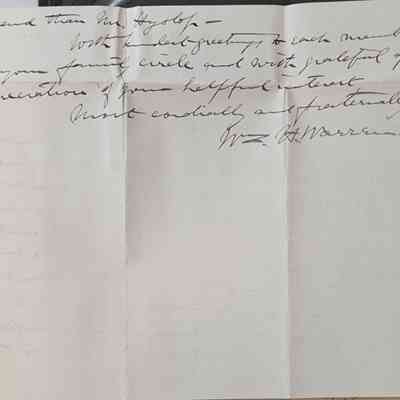 end than Mr. Hyslop—
With kindest greetings to each memb
your family circle and with grateful a
preciation of your helpful interest
Most cordially and fraternally
Wm. H. Warren